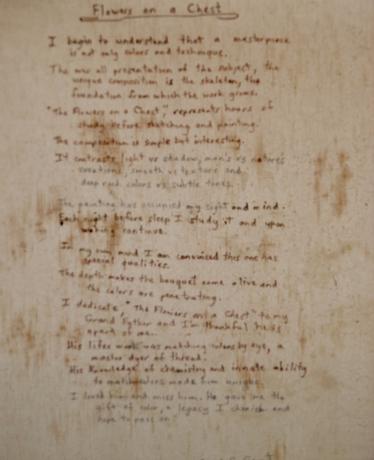 Flowers on a Chest
I begin to understand that a masterpiece
is not only colors and technique.
The over all presentation of the subject, the
unique composition is the skeleton, the
foundation from which the work grows.
"The Flowers on a Chest," represents hours of
study before sketching and painting.
The composition is simple but interesting.
It contrasts light vs shadow, man's vs nature's
creations, smooth vs texture and
deep rock colors vs subtle tones.
The painting has occupied my sight and mind.
Each night before sleep I study it and upon
waking continue.
In my own mind I am convinced this one has
special qualities.
The depth makes the bouquet come alive and
the colors are penetrating.
I dedicate, "The Flowers on a Chest" to my
Grand Father and I'm thankful he is
apart of me.
His lifes work was matching colors by eye, a
master dyer of thread.
His Knowledge of chemistry and innate ability
to match colors made him unique.
I loved him and miss him. He gave me the
gift of color, a legacy I cherish and
hope to pass on.